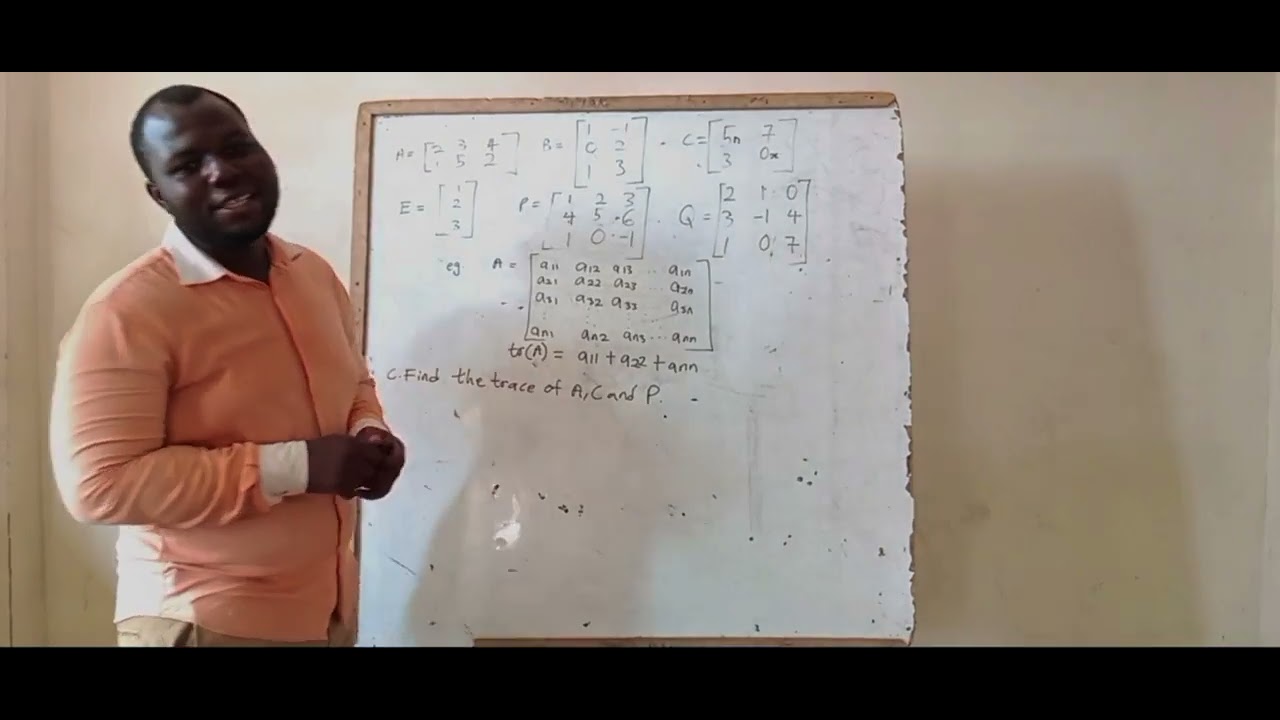 A = [2 3 4
1 5 2]
B = [1 -1
0 2
1 3]
C = [5n 7
3 0x]
E = [1
2
3]
P = [1 2 3
4 5 -6
1 0 -1]
Q = [2 1 0
3 -1 4
1 0 7]
eg. A = [a11 a12 a13 ... a1n
a21 a22 a23 ... a2n
a31 a32 a33 ... a3n
an1 an2 an3 ... ann]
tr(A) = a11 + a22 + ann
C. Find the trace of A, C and P.